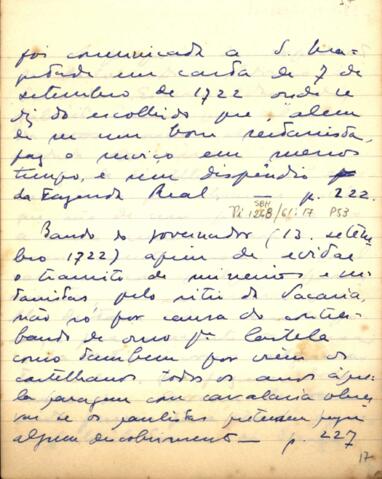 foi comunicada a S. Ma-
gestade em carta de 7 de
setembro de 1722 onde se
diz do escolhido que "alem
de ser um bom sertanista,
faz o serviço em menos
tempo, e sem dispêndio
da Fazenda Real. — p. 222.
SBH
Pi 1268/61:17 P53
Bando do governador (13. setem-
bro 1722) afim de evitar
o transito de mineiros e ser-
tanistas pelo sitio da Vacaria,
não só por causa do contra-
bando de ouro pª Castela
como tambem por virem os
castelhanos todos os anos àque-
la paragem com cavalaria obser-
var se os paulistas pretendem
algum descobrimento — p. 227
17